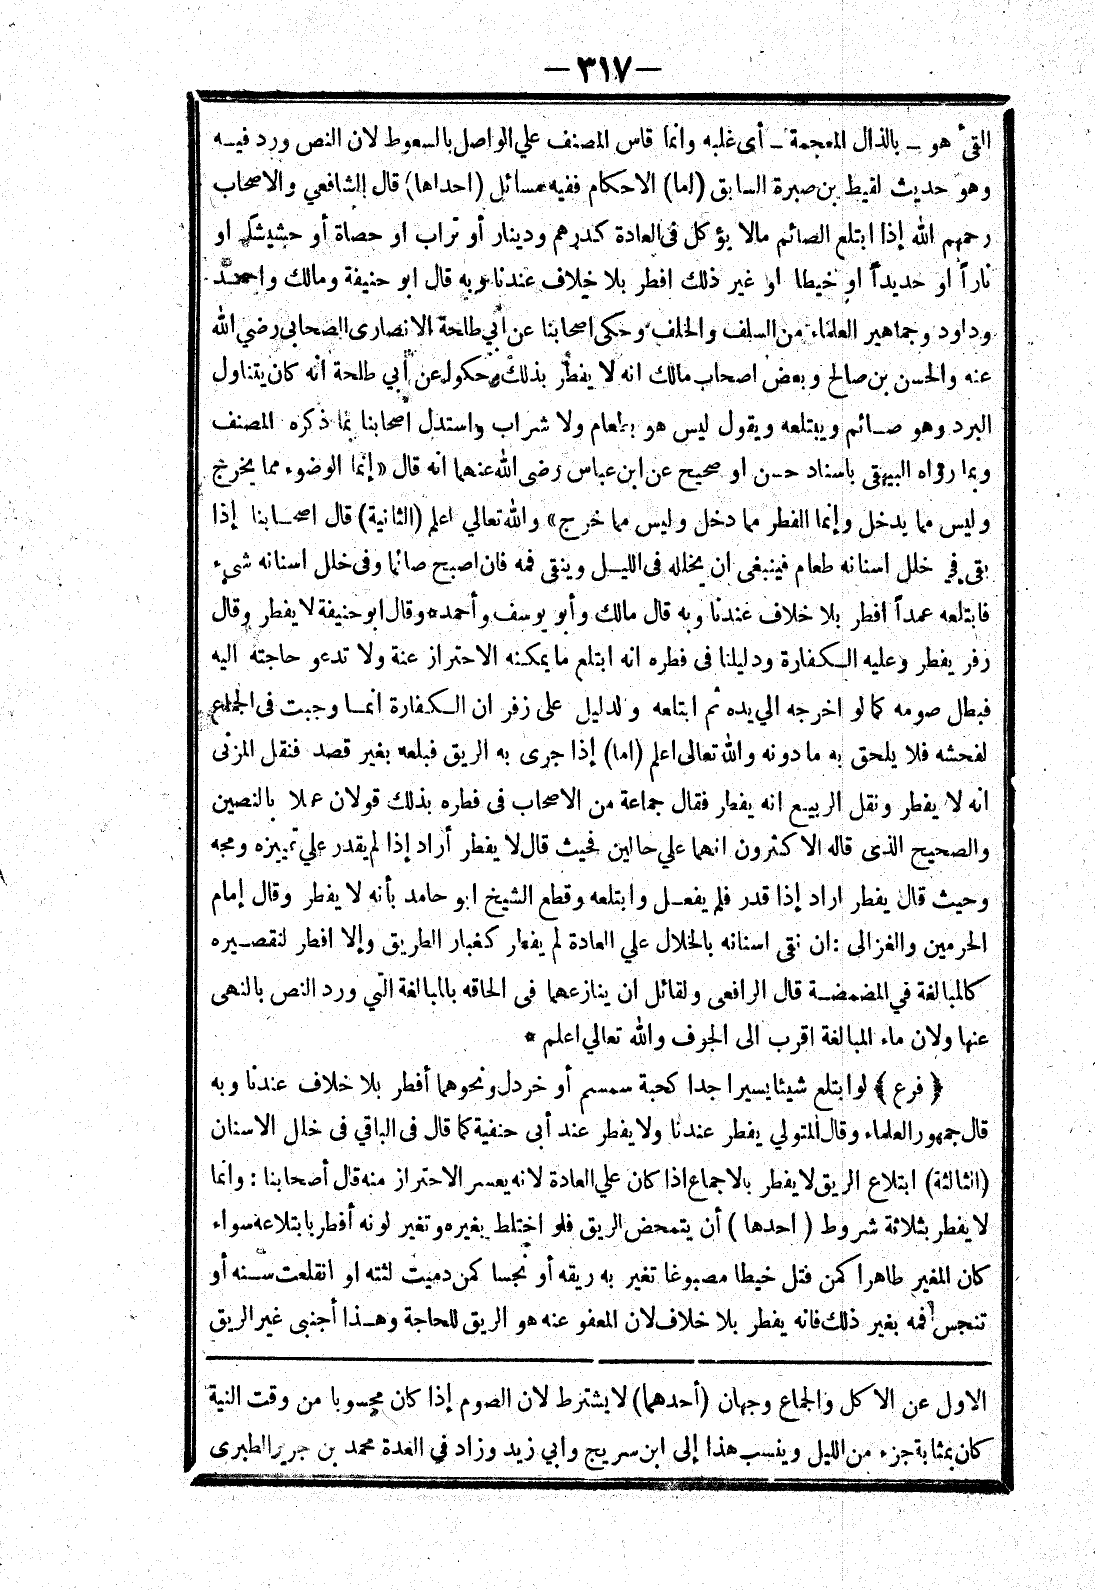 — ٣١٧ —
القئ هو ــ بالذال المعجمة ــ أى غلبه وانما قاس المصنف علي الواصل بالسعوط لان النص ورد فيه
وهو حديث لقيط بن صبرة السابق (اما) الاحكام ففيه مسائل (احداها) قال الشافعي والاصحاب
رحمهم الله إذا ابتلع الصائم مالا يؤكل فى العادة كدرهم ودينار أو تراب او حصاة أو حشيشا او
ناراً او حديداً او خيطا او غير ذلك افطر بلا خلاف عندنا وبه قال ابو حنيفة ومالك واحمد
وداود وجماهير العلماء من السلف والخلف وحكى اصحابنا عن أبي طلحة الانصارى الصحابى رضي الله
عنه والحسن بن صالح وبعض اصحاب مالك انه لا يفطر بذلك وحكوا عن أبي طلحة انه كان يتناول
البرد وهو صائم ويبتلعه ويقول ليس هو بطعام ولا شراب واستدل اصحابنا بما ذكره المصنف
وبما رواه البيهقى باسناد حسن او صحيح عن ابن عباس رضى الله عنهما انه قال «إنما الوضوء مما يخرج
وليس مما يدخل وإنما الفطر مما دخل وليس مما خرج» والله تعالي اعلم (الثانية) قال اصحابنا إذا
بقى في خلل اسنانه طعام فينبغى ان يخلله فى الليل وينقى فمه فان اصبح صائما وفى خلل اسنانه شىء
فابتلعه عمداً افطر بلا خلاف عندنا وبه قال مالك وأبو يوسف وأحمد * وقال ابو حنيفة لا يفطر وقال
زفر يفطر وعليه الكفارة ودليلنا فى فطره انه ابتلع ما يمكنه الاحتراز عنة ولا تدعو حاجته اليه
فبطل صومه كما لو اخرجه الي يده ثم ابتلعه والدليل على زفر ان الكفارة انما وجبت فى الجماع
لفحشه فلا يلحق به ما دونه والله تعالى اعلم (اما) إذا جرى به الريق فبلعه بغير قصد فنقل المزنى
انه لا يفطر ونقل الربيع انه يفطر فقال جماعة من الاصحاب فى فطره بذلك قولان عملا بالنصين
والصحيح الذى قاله الاكثرون انهما علي حالين فحيث قال لا يفطر أراد إذا لم يقدر علي تمييزه ومجه
وحيث قال يفطر اراد إذا قدر فلم يفعل وابتلعه وقطع الشيخ ابو حامد بأنه لا يفطر وقال إمام
الحرمين والغزالى : ان نقى اسنانه بالخلال علي العادة لم يفطر كغبار الطريق وإلا افطر لتقصيره
كالمبالغة في المضمضة قال الرافعى ولقائل ان ينازعهما فى الحاقه بالمبالغة التي ورد النص بالنهى
عنها ولان ماء المبالغة اقرب الى الجوف والله تعالي اعلم *
﴿ فرع ﴾ لو ابتلع شيئا يسيرا جدا كحبة سمسم أو خردل ونحوهما أفطر بلا خلاف عندنا وبه
قال جمهور العلماء وقال المتولي يفطر عندنا ولا يفطر عند أبى حنفية كما قال فى الباقي فى خلل الاسنان
(الثالثة) ابتلاع الريق لا يفطر بالاجماع اذا كان علي العادة لانه يعسر الاحتراز منه قال أصحابنا : وانما
لا يفطر بثلاثة شروط ( احدها ) أن يتمحض الريق فلو اختلط بغيره وتغير لونه أفطر بابتلاعه سواء
كان المغير طاهرا كمن فتل خيطا مصبوغا تغير به ريقه أو نجسا كمن دميت لثته او انقلعت سنه أو
تنجس فمه بغير ذلك فانه يفطر بلا خلاف لان المعفو عنه هو الريق للحاجة وهذا أجنبى غير الريق
الاول عن الاكل والجماع وجهان (أحدهما) لا يشترط لان الصوم إذا كان محسوبا من وقت النية
كان بمثابة جزء من الليل وينسب هذا إلى ابن سريج وابي زيد وزاد في العدة محمد بن جرير الطبرى